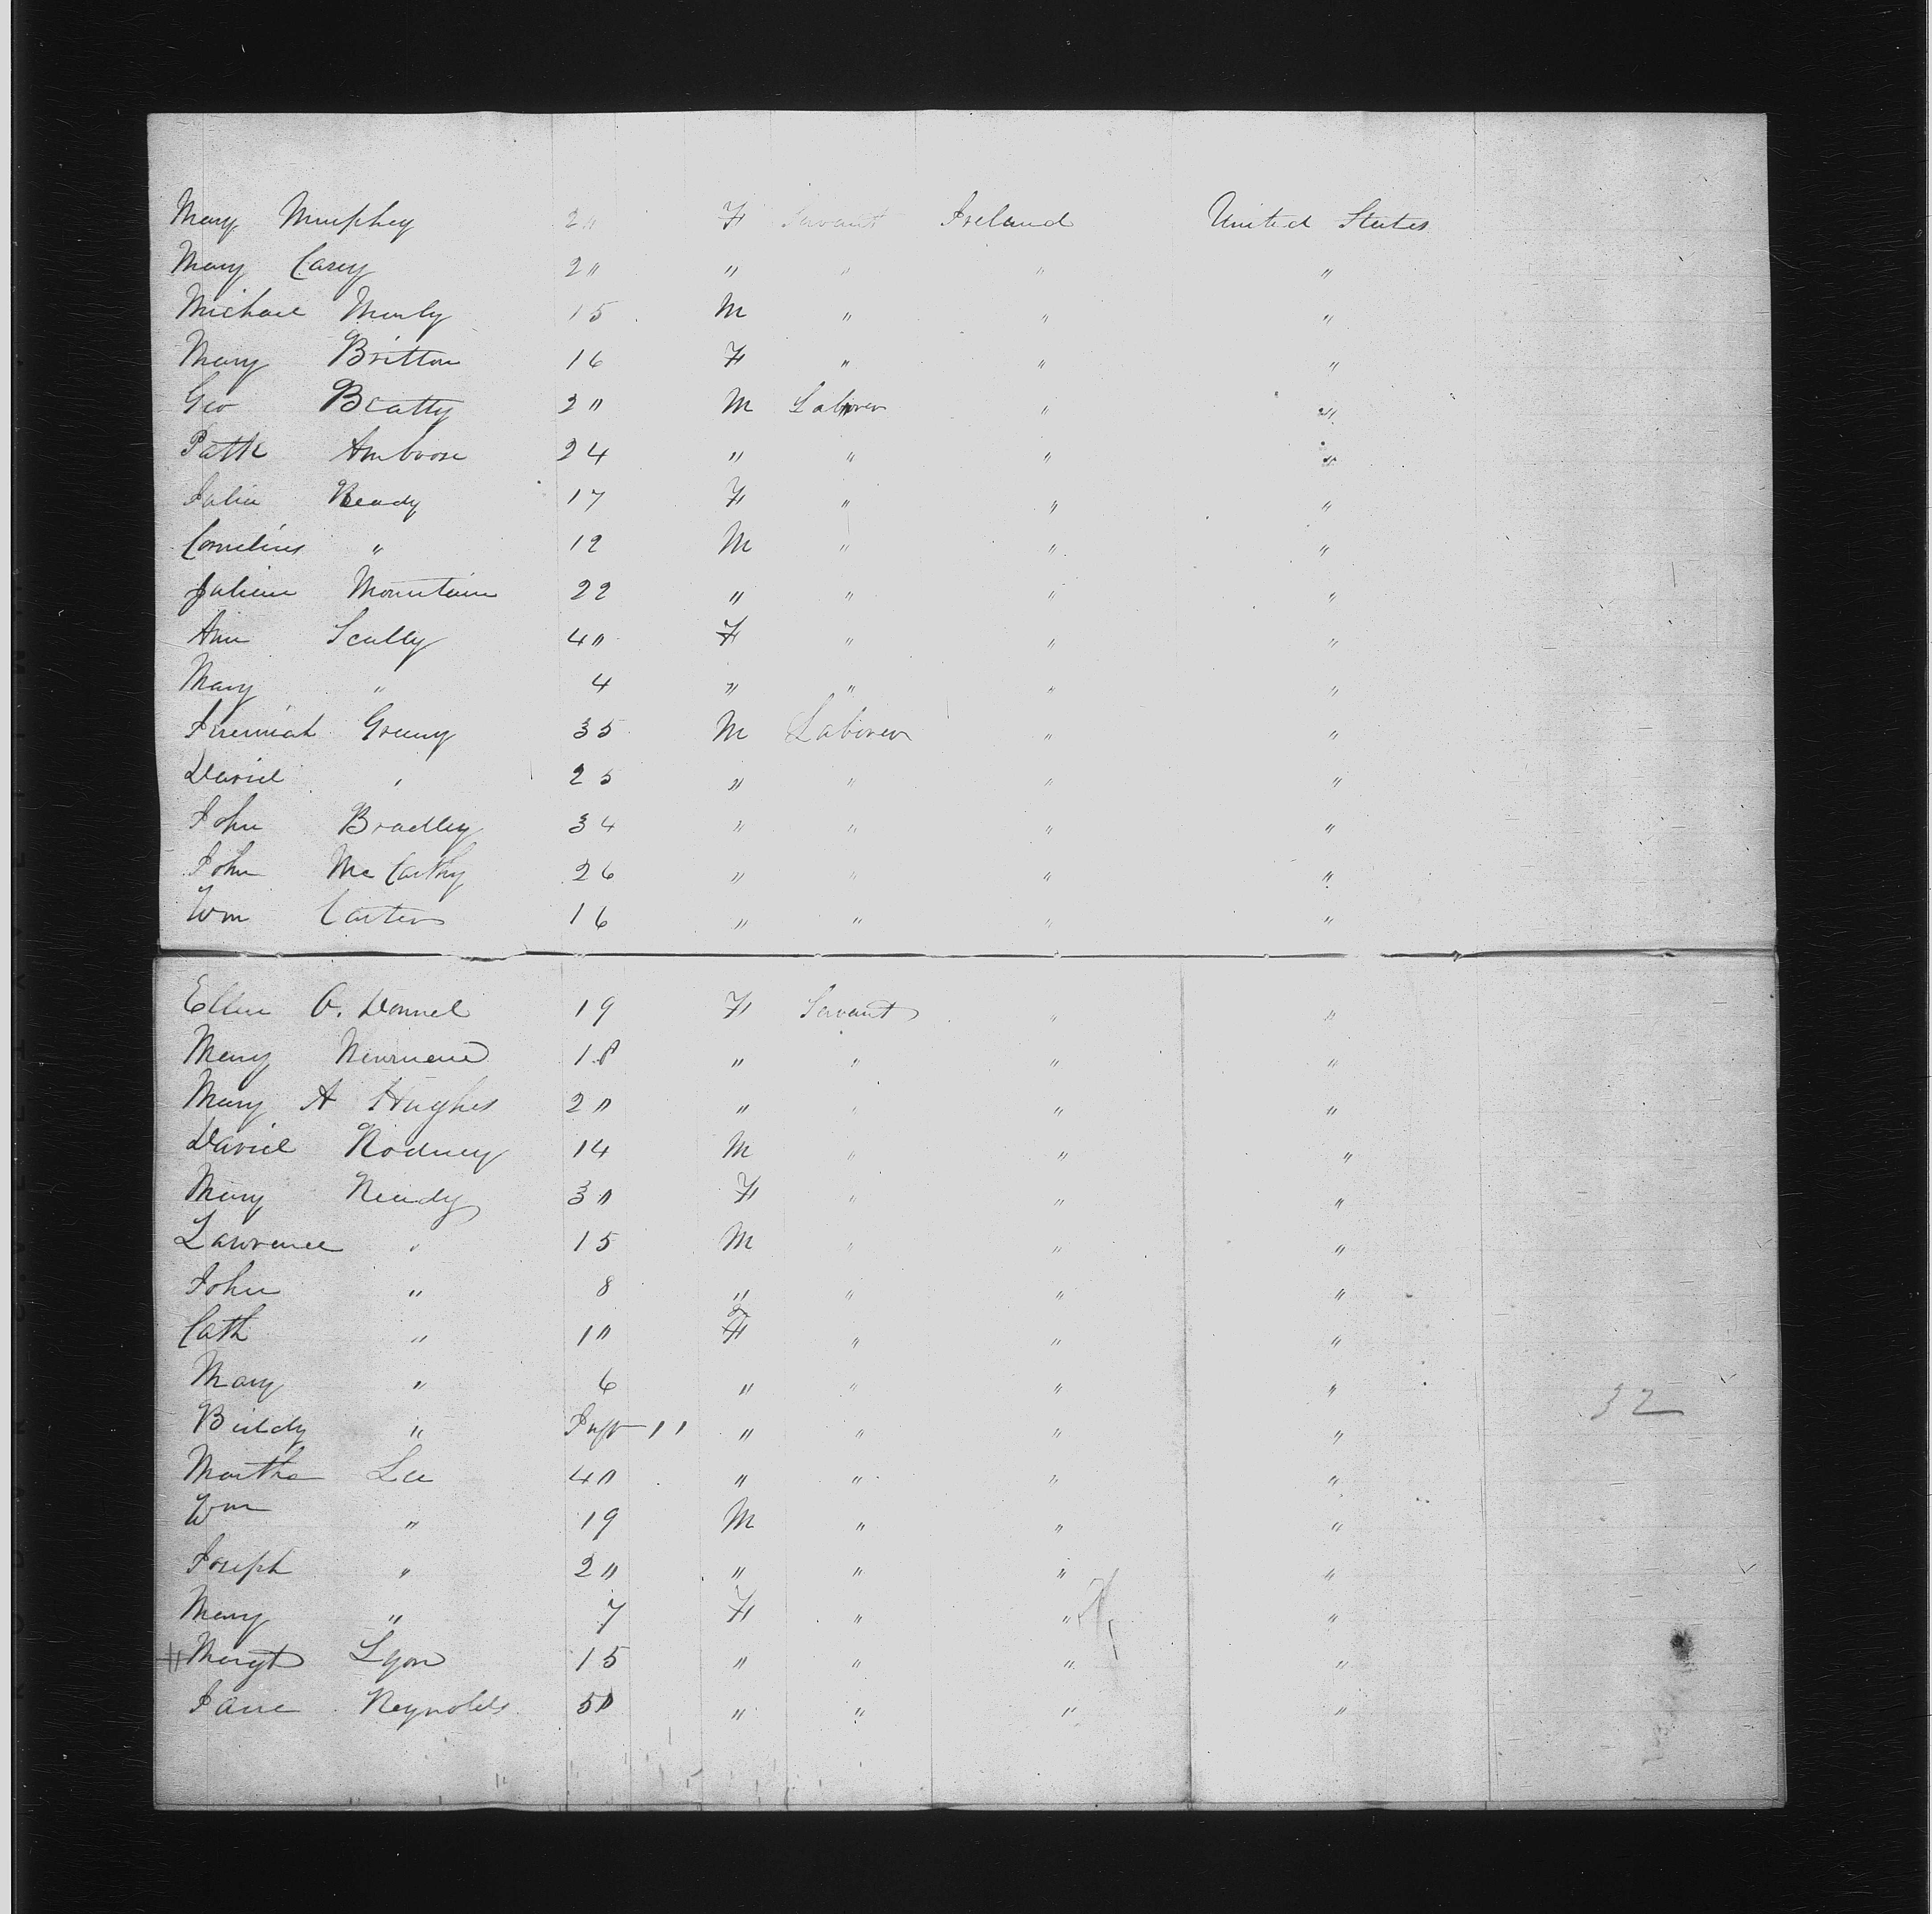 Mary Murphey 20 F Servant Ireland United States
Mary Casey 20 " " " "
Michael Manly 15 M " " "
Mary Britton 16 F " " "
Geo Beatty 20 M Laborer " "
Patk Ambrose 24 " " " "
Julia Ready 17 F " " "
Cornelius " 12 M " " "
Mountain 22 " " " "
Ann Scully 40 F " " "
Mary " 4 " " " "
Jeremiah 35 M Laborer " "
David " 25 " " " "
John Bradley 34 " " " "
John McCarthy 26 " " " "
Wm Carter 16 " " " "
Ellen O. Donnel 19 F Servant " "
Mary 18 " " " "
Mary A Hughes 20 " " " "
David Rodney 14 M " " "
Mary Ready 30 F " " "
Lawrence " 15 M " " "
John " 8 " " " "
Cath " 10 F " " "
Mary " 6 " " " "
" Inft 11 " " " "
32
Martha Lee 40 " " " "
Wm " 19 M " " "
Joseph " 20 " " " "
Mary " 7 F " " "
Margt Lyon 15 " " " "
Jane Reynolds 50 " " " "